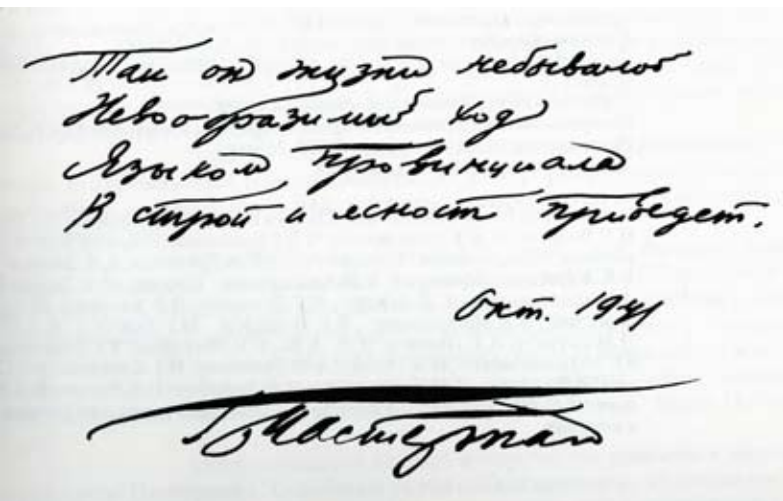 Так он жизни небывалой
Невообразимый ход
Языком провинциала
В строй и ясность приведет.
Окт. 1941
Б Пастернак